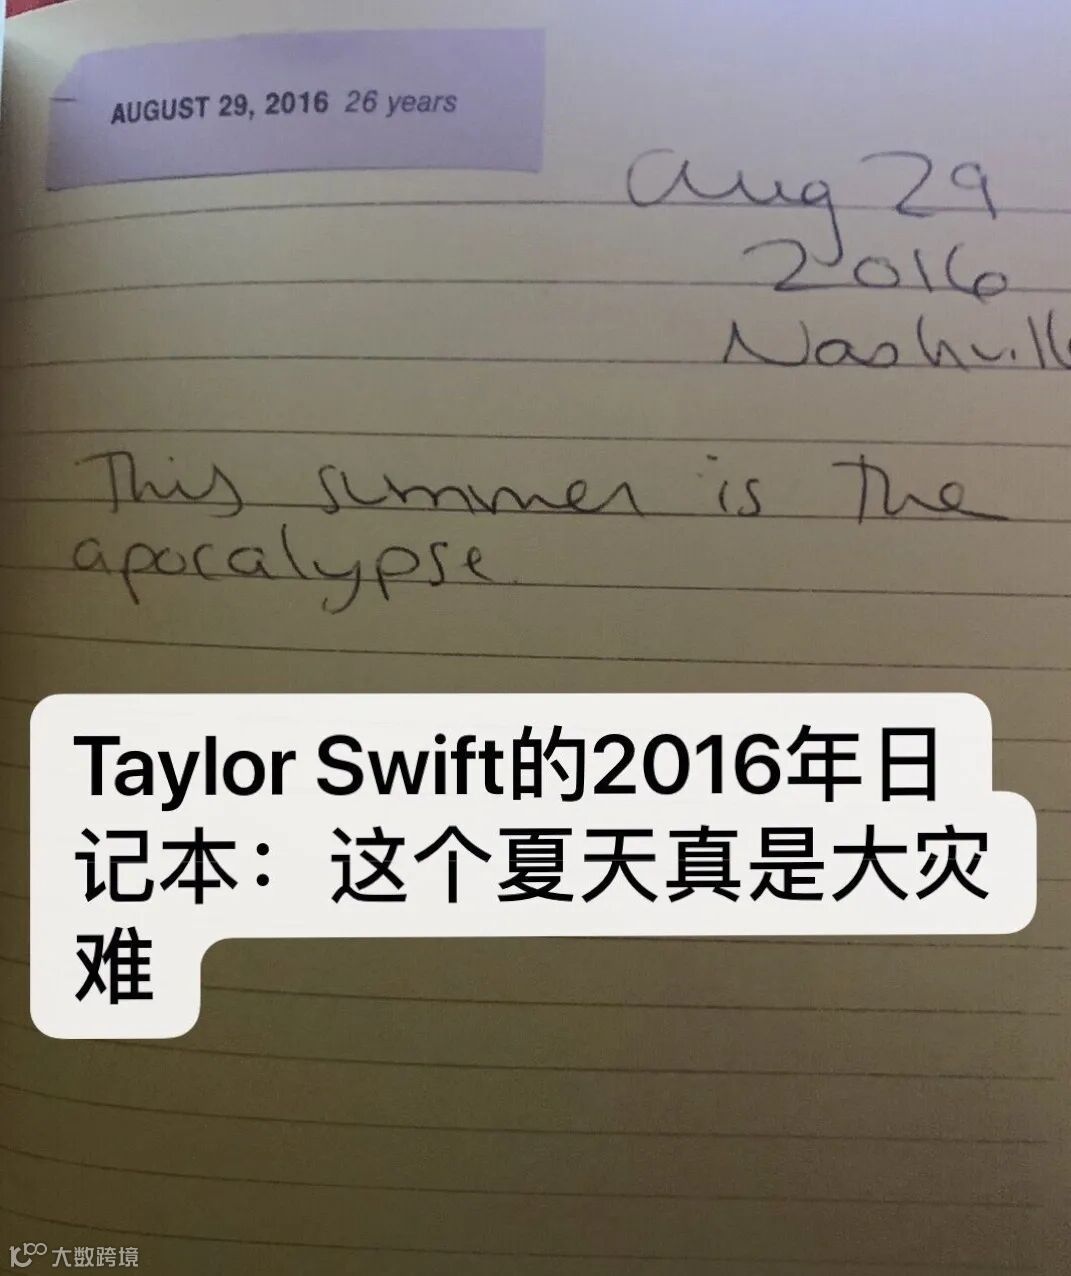 AUGUST 29, 2016 26 years
Aug 29
2016
Nashville
This summer is the
apocalypse.
Taylor Swift的2016年日
记本：这个夏天真是大灾
难
大数跨境